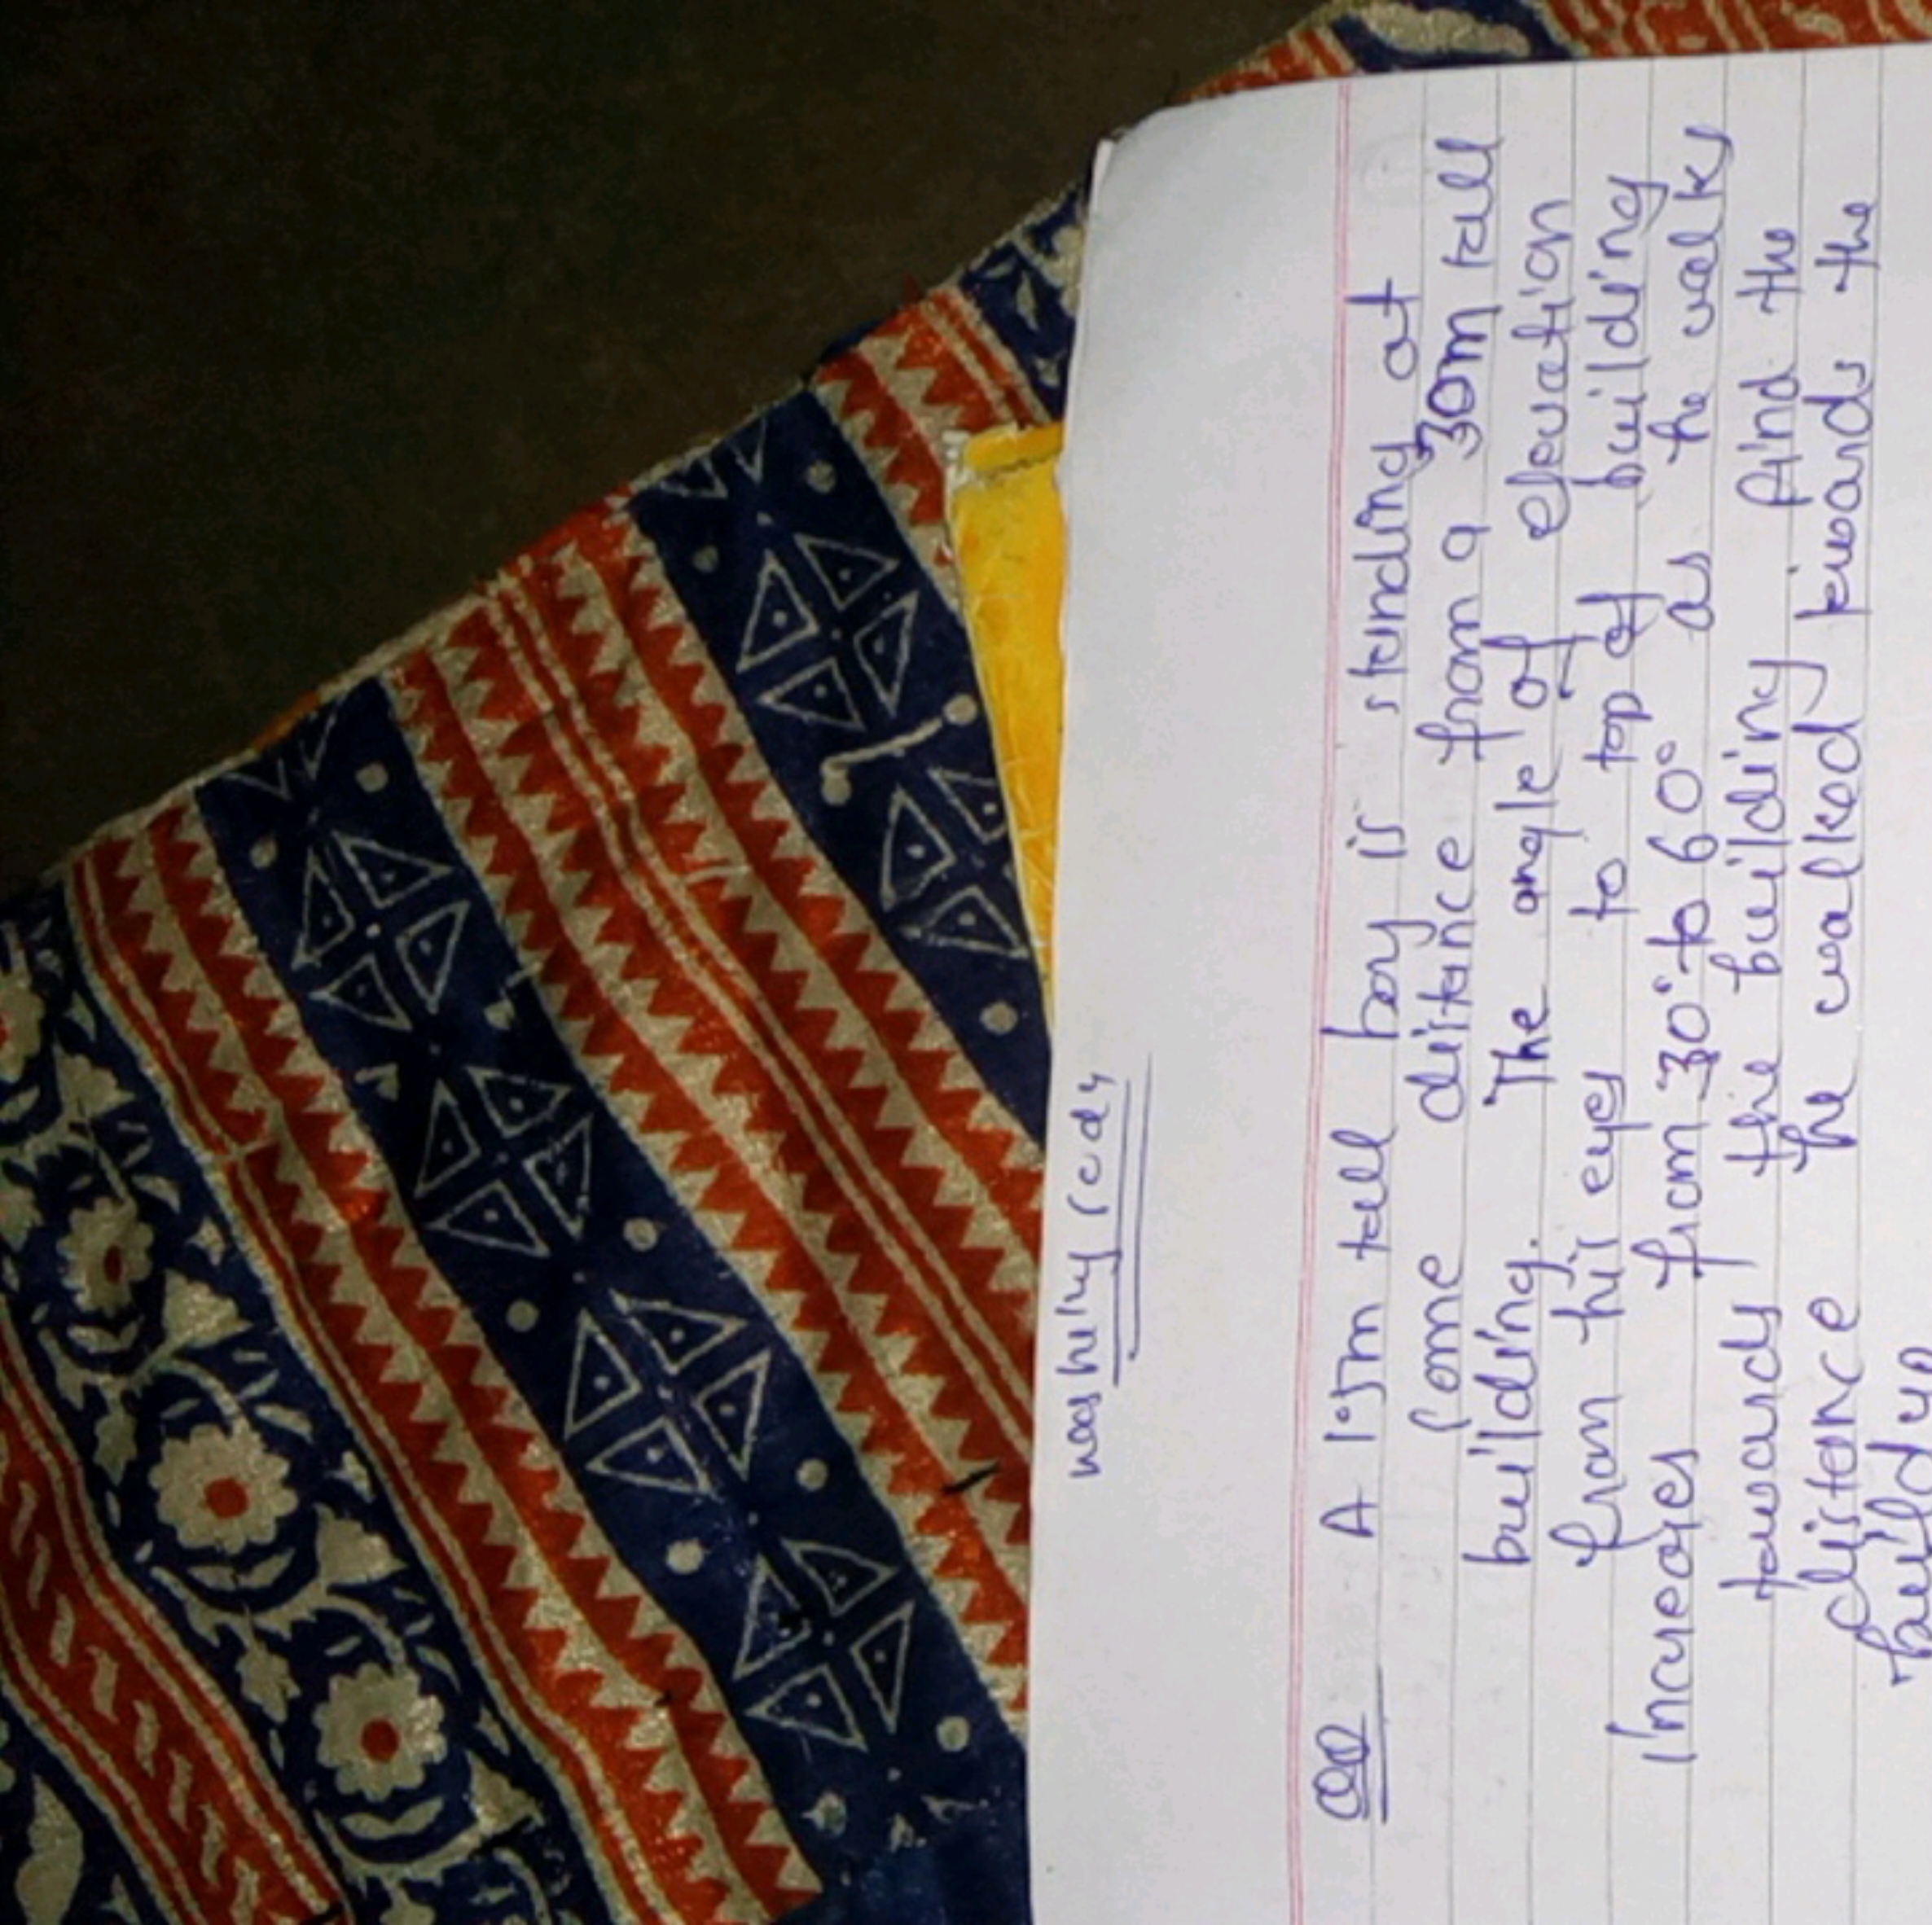 Q2 A 1.5m tall boy is standing at
some distance from a 30m tall
building. The angle of elevation
from his eyes to top of building
increases from 30° to 60° as he walks
towards the building find the
distance he walked towards the